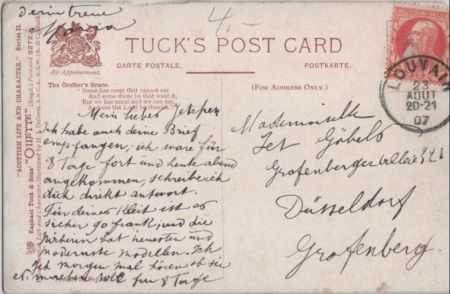 4.-
TUCK'S POST CARD
CARTE POSTALE.
POSTKARTE.
By Appointment.
(FOR ADDRESS ONLY.)
The Crofter's Grace.
"Some hae meat that canna eat
And some there be that want it,
But we hae meat and we can eat,
And sae the Lord be thankit."
"SCOTTISH LIFE AND CHARACTER." Series II.
Raphael Tuck & Sons' "OILETTE"
LOUVAIN
23
AOUT
20-21
07
Maria
Mein lieber
Ich habe auch deine Brief
empfangen; ich ware für
8 Tage fort und heute abend
angekommen, schreibe ich
dich direkt antwort.
Für deines Kleit ist es
sicher 90 frank, und die
Näherin hat neuesten und
modernste modellen. Ich
Ich morgen mal hören ob sie
es will für 8 Tage
Mademoiselle
Jet Göbels
Grafenberger allee
Düsseldorf
Grafenberg.